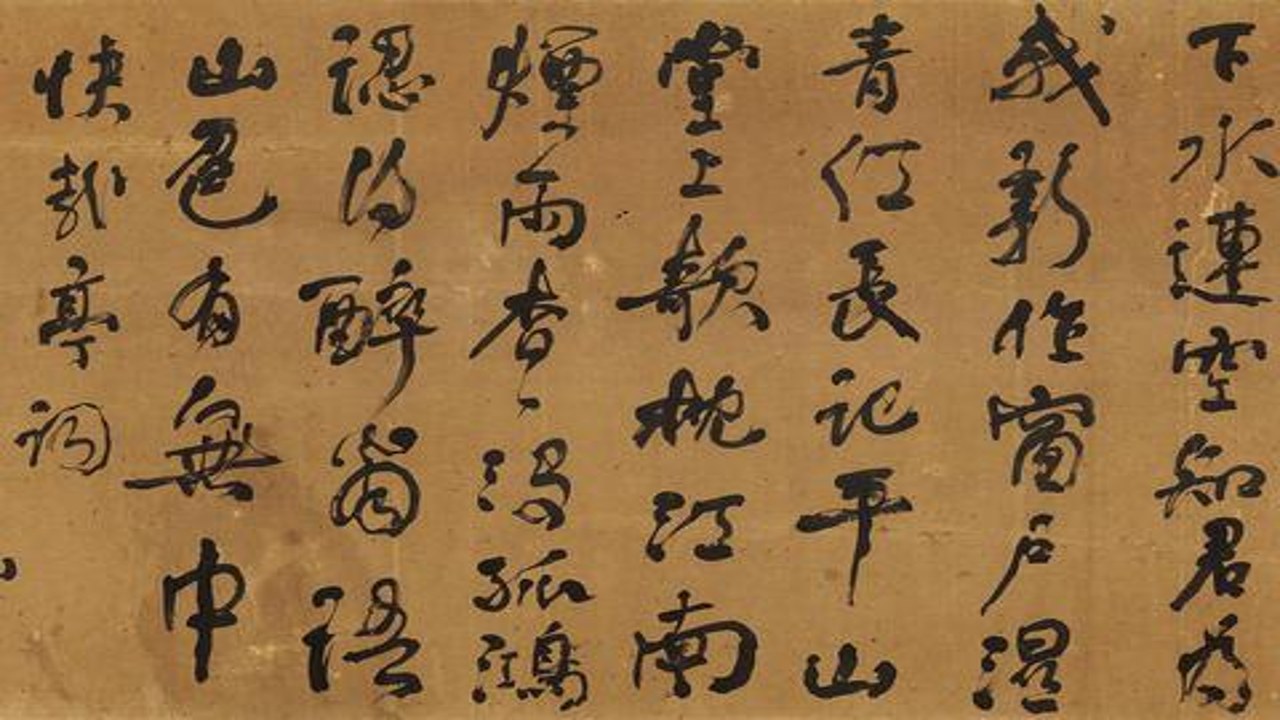 下水連空知君為
我新作窗戶湿
青紅長記平山
堂上欹枕江南
煙雨杳〻沒孤鴻
認得醉翁語
山色有無中
快哉亭詞